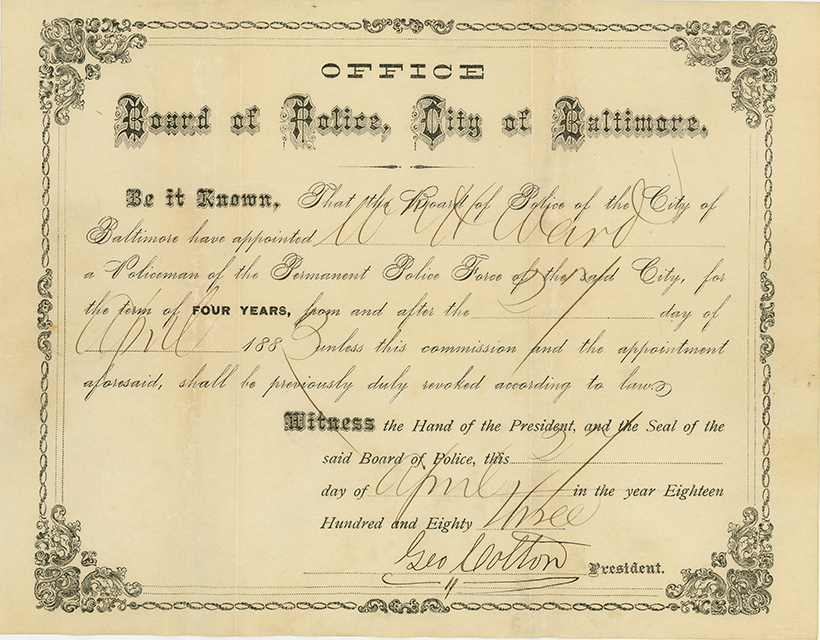 OFFICE
Board of Police, City of Baltimore.
Be it Known, That the Board of Police of the City of
Baltimore have appointed W H Ward
a Policeman of the Permanent Police Force of the said City, for
the term of FOUR YEARS, from and after the 27 day of
April 1883 unless this commission and the appointment
aforesaid, shall be previously duly revoked according to law.
Witness the Hand of the President, and the Seal of the
said Board of Police, this 27
day of April in the year Eighteen
Hundred and Eighty three
Geo Colton President.